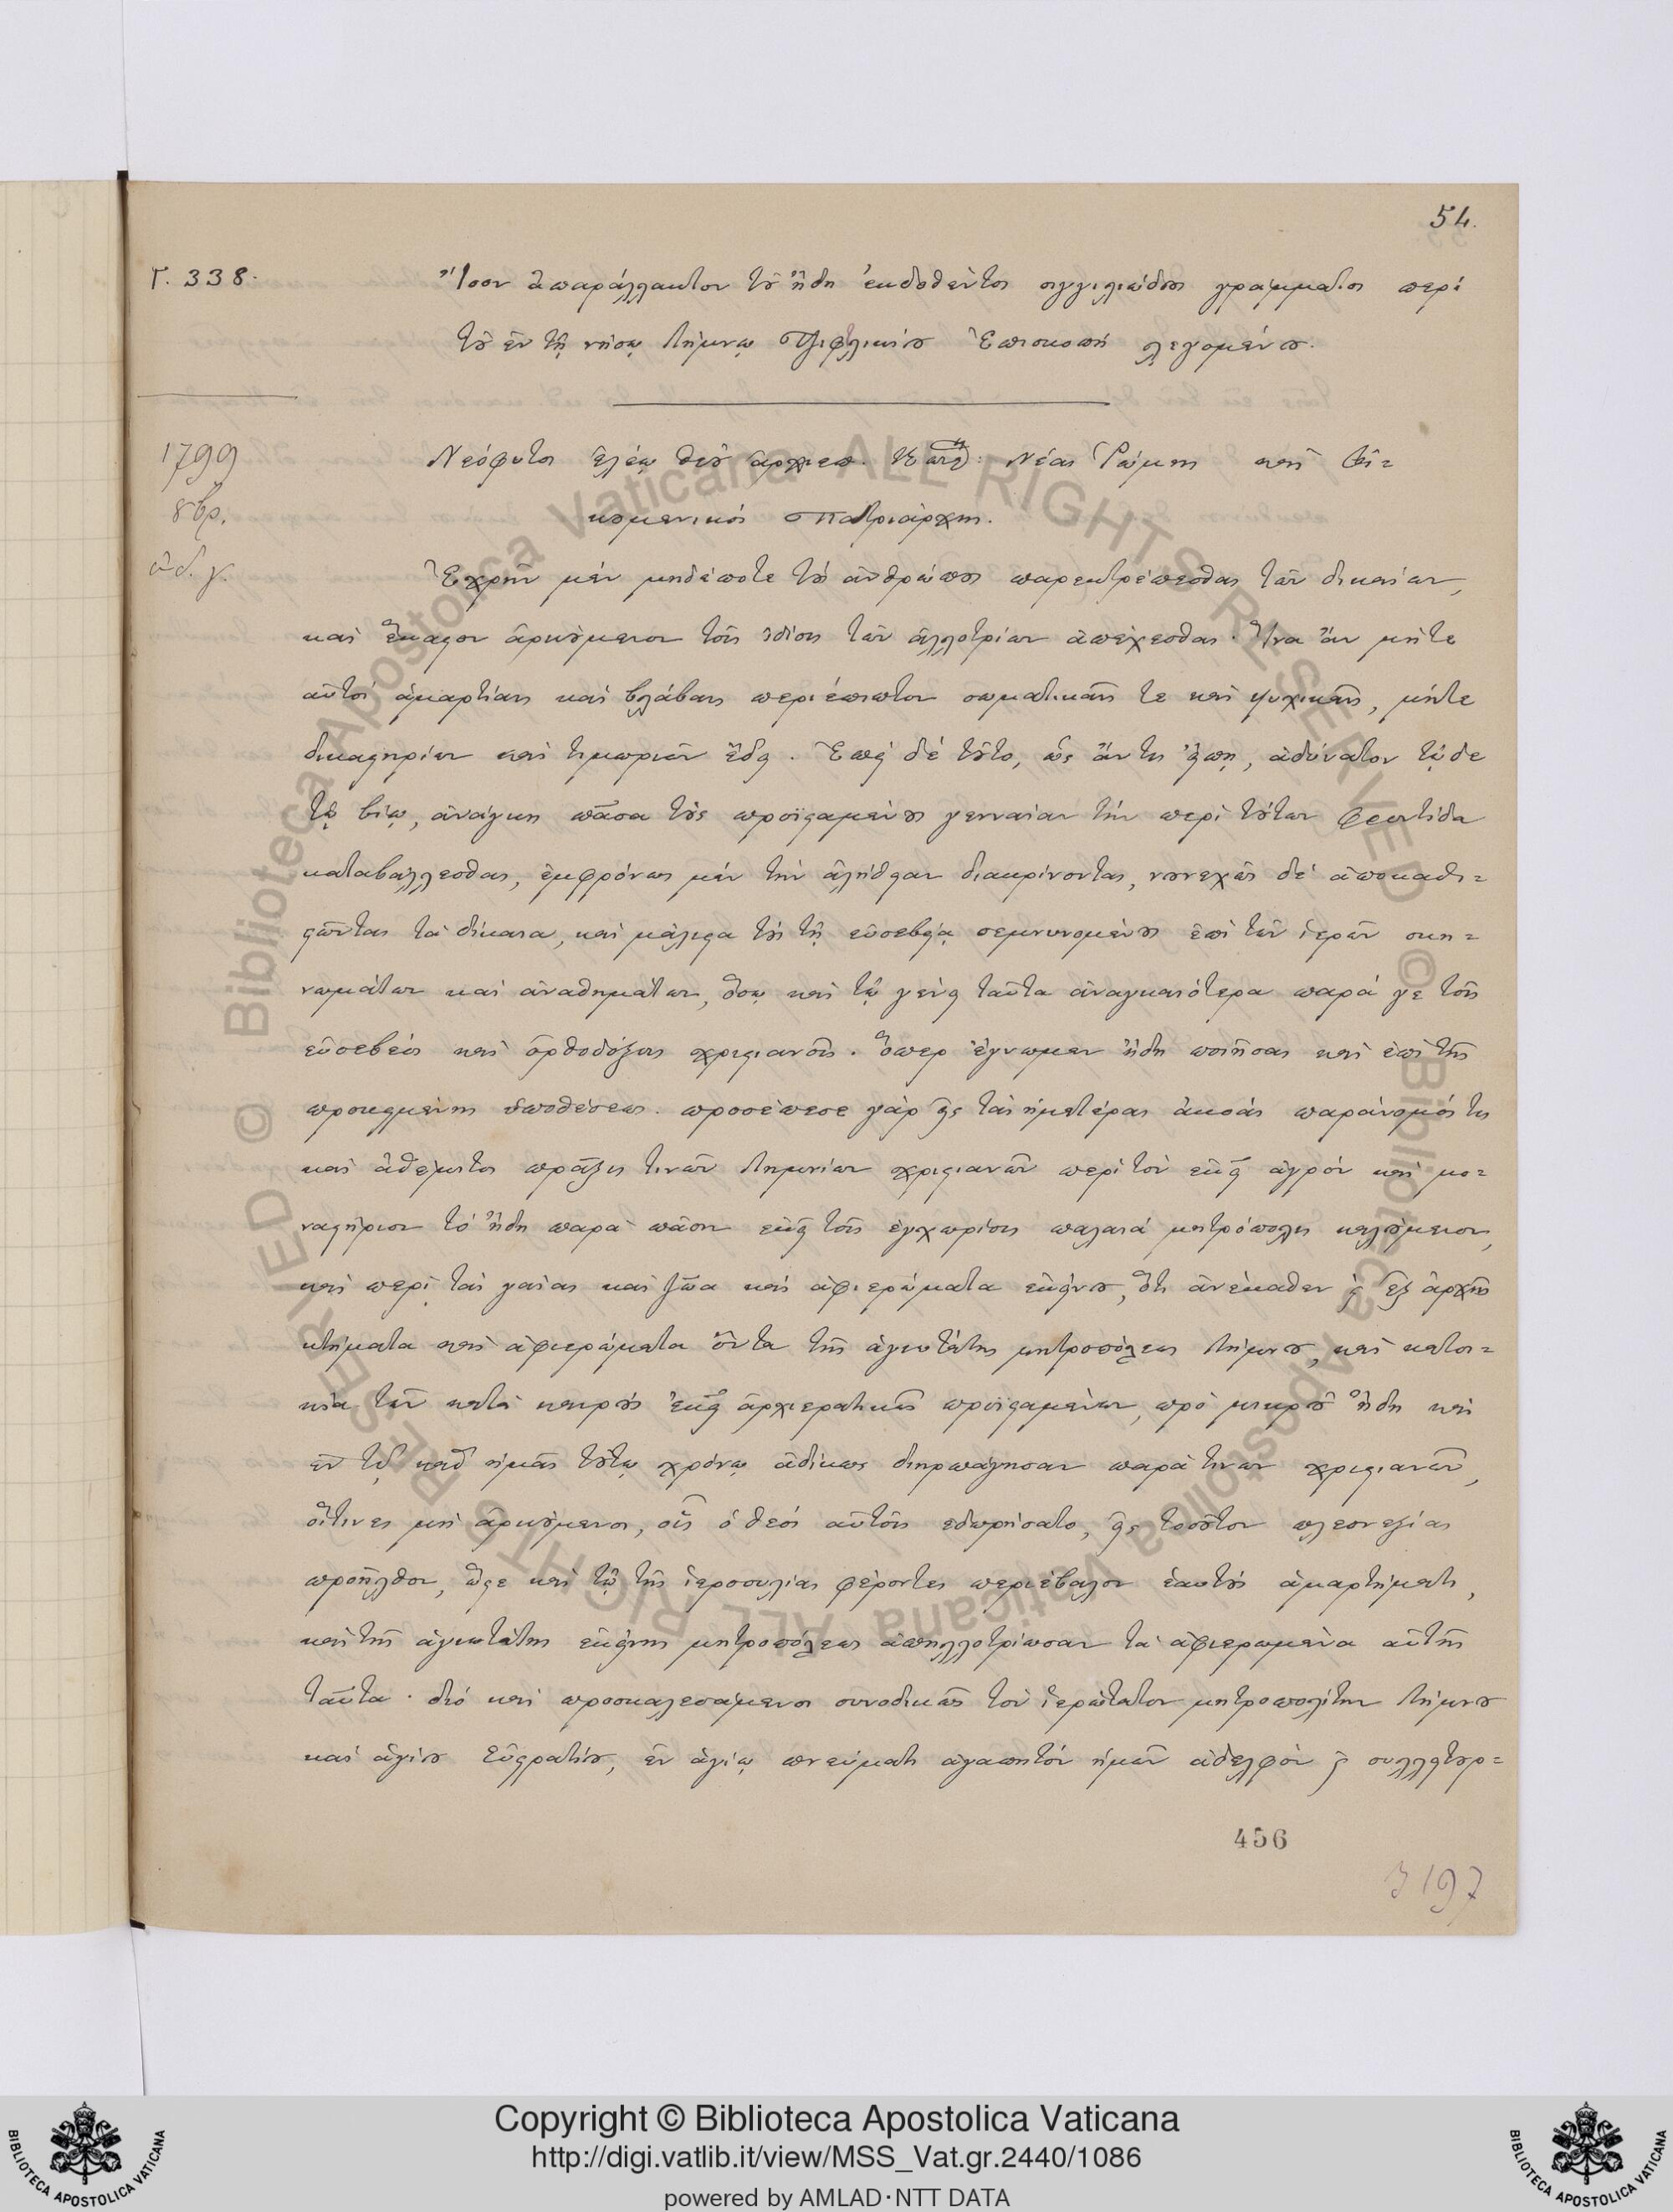 54.
Γ. 338.
Ἴσον ἀπαράλλακτον τοῦ ἤδη ἐκδοθέντος σιγγιλιώδους γράμματος περὶ
τοῦ ἐν τῇ νήσῳ Λήμνῳ Τζιφλικίου Ἐπισκοπή λεγομένου.
1799
8βρ.
ἰνδ. γ.
Νεόφυτος ἐλέῳ θεοῦ ἀρχιεπ. Κωνπόλ: Νέας Ῥώμης καὶ Οἰ=
κουμενικὸς Πατριάρχης.
Ἐχρῆν μὲν μηδέποτε τοὺς ἀνθρώπους παρεκτρέπεσθαι τῶν δικαίων,
καὶ ἕκαστον ἀρκούμενον τοῖς ἰδίοις τῶν ἀλλοτρίων ἀπέχεσθαι. Ἵνα ἂν μήτε
αὐτοὶ ἁμαρτίαις καὶ βλάβαις περιέπιπτον σωματικαῖς τε καὶ ψυχικαῖς, μήτε
δικαστηρίων καὶ τιμωριῶν ἔδει. Ἐπεὶ δὲ τοῦτο, ὡς ἄν τις εἴπῃ, ἀδύνατον τῷδε
τῷ βίῳ, ἀνάγκη πᾶσα τοὺς προϊσταμένους γενναίαν τὴν περὶ τούτων φροντίδα
καταβάλλεσθαι, ἐμφρόνως μὲν τὴν ἀλήθειαν διακρίνοντας, νουνεχῶς δὲ ἀποκαθι=
στῶντας τὰ δίκαια, καὶ μάλιστα τοὺς τῇ εὐσεβείᾳ σεμνυνομένους ἐπὶ τῶν ἱερῶν σκη=
νωμάτων καὶ ἀναθημάτων, ὅσῳ καὶ τῷ γένει ταῦτα ἀναγκαιότερα παρά γε τοῖς
εὐσεβέσι καὶ ὀρθοδόξοις χριστιανοῖς. Ὅπερ ἔγνωμεν ἤδη ποιῆσαι καὶ ἐπὶ τῆς
προκειμένης ὑποθέσεως. προσέπεσε γὰρ εἰς τὰς ἡμετέρας ἀκοὰς παράνομός τις
καὶ ἀθέμιτος πρᾶξις τινῶν Λημνίων χριστιανῶν περὶ τὸν ἐκεῖ ἀγρὸν καὶ μο=
ναστήριον τὸ ἤδη παρὰ πᾶσιν ἐκεῖ τοῖς ἐγχωρίοις παλαιά μητρόπολις καλούμενον,
καὶ περὶ τὰς γαίας καὶ ζῶα καὶ ἀφιερώματα ἐκείνου, ὅτι ἀνέκαθεν ϗ ἐξ ἀρχῆς
κτήματα καὶ ἀφιερώματα ὄντα τῆς ἁγιωτάτης μητροπόλεως Λήμνου, καὶ κατοι=
κία τῶν κατὰ καιροὺς ἐκεῖ ἀρχιερατικῶς προϊσταμένων, πρὸ μικροῦ ἤδη καὶ
ἐν τῷ καθ' ἡμᾶς τούτῳ χρόνῳ ἀδίκως διηρπάγησαν παρὰ τινων χριστιανῶν,
οἵτινες μὴ ἀρκούμενοι, οἷς ὁ θεὸς αὐτοῖς ἐδωρήσατο, εἰς τοσοῦτον πλεονεξίας
προῆλθον, ὥστε καὶ τῷ τῆς ἱεροσυλίας φέροντες περιέβαλον ἑαυτοὺς ἁμαρτήματι,
καὶ τῆς ἁγιωτάτης ἐκείνης μητροπόλεως ἀπηλλοτρίωσαν τὰ ἀφιερωμένα αὐτῆς
ταῦτα. διὸ καὶ προσκαλεσάμενοι συνοδικῶς τὸν ἱερώτατον μητροπολίτην Λήμνου
καὶ ἁγίου Εὐστρατίου, ἐν ἁγίῳ πνεύματι ἀγαπητὸν ἡμῶν ἀδελφὸν ϗ συλλειτουρ=
456
197
© Biblioteca Apostolica Vaticana ALL RIGHTS RESERVED © Biblioteca Apostolica Vaticana ALL RIGHTS RESERVED
Copyright © Biblioteca Apostolica Vaticana
http://digi.vatlib.it/view/MSS_Vat.gr.2440/1086
powered by AMLAD·NTT DATA
BIBLIOTECA APOSTOLICA VATICANA
BIBLIOTECA APOSTOLICA VATICANA